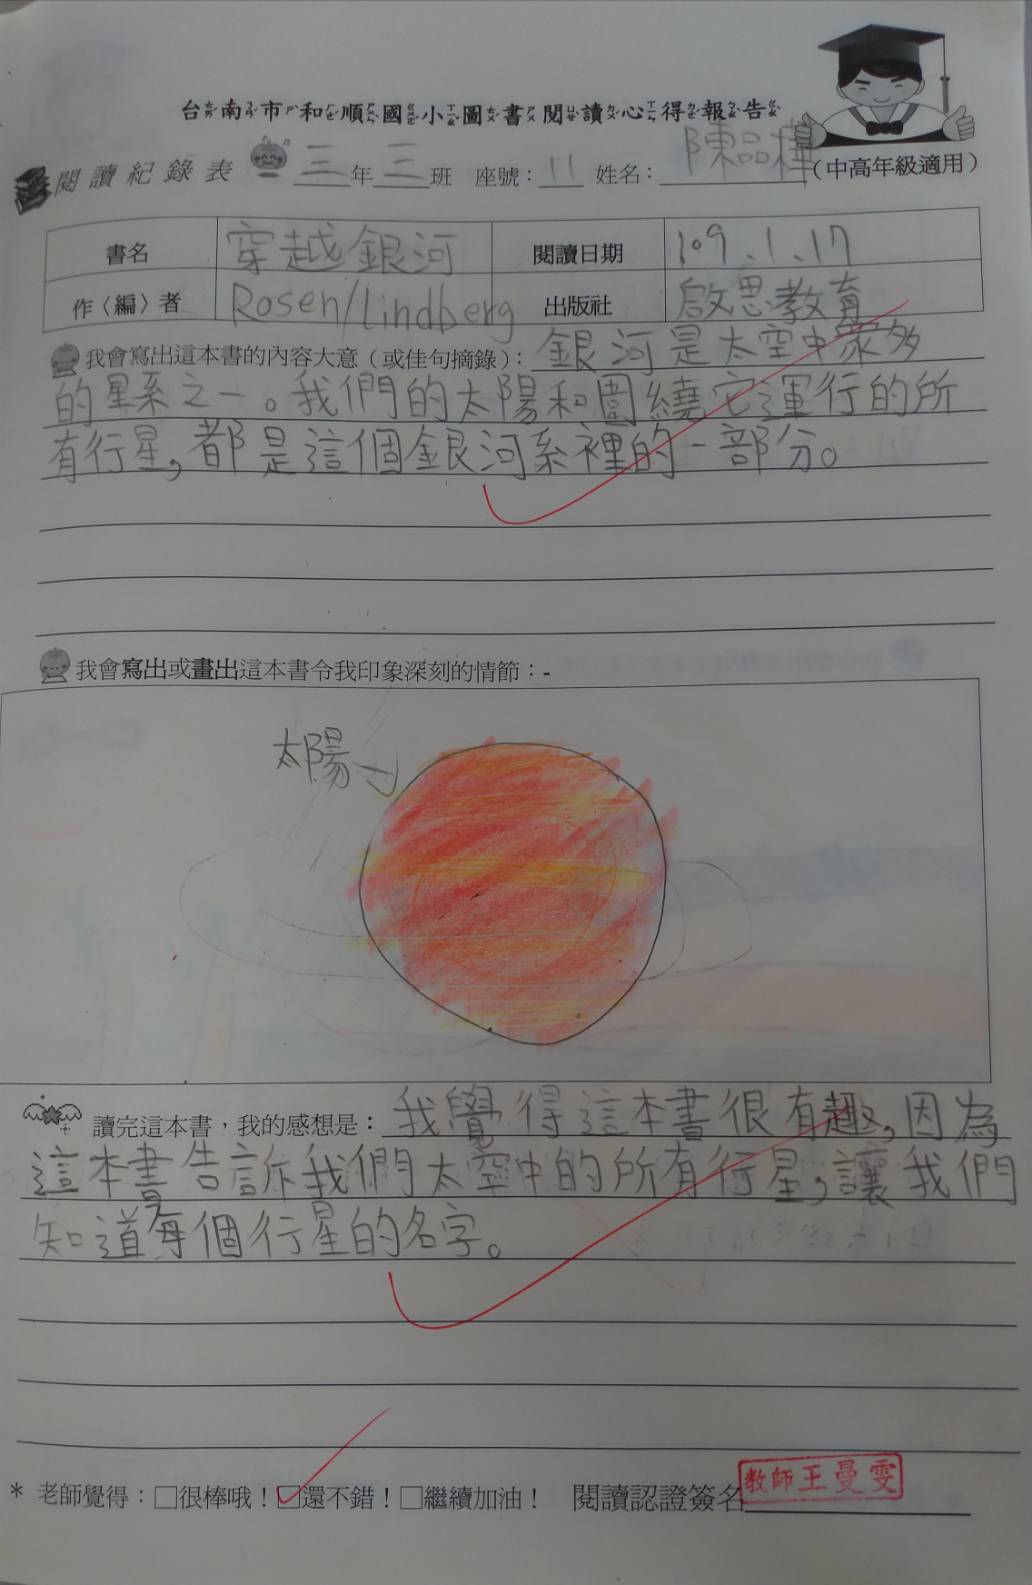 台南市和順國小圖書閱讀心得報告
閱讀紀錄表 三年三班 座號：11 姓名：陳品樺（中高年級適用）
書名 穿越銀河 閱讀日期 109.1.17
作〈編〉者 Rosen/Lindberg 出版社 啟思教育
我會寫出這本書的內容大意（或佳句摘錄）：銀河是太空中眾多
的星系之一。我們的太陽和圍繞它運行的所
有行星，都是這個銀河系裡的一部分。
我會寫出或畫出這本書令我印象深刻的情節：-
太陽
讀完這本書，我的感想是：我覺得這本書很有趣，因為
這本書告訴我們太空中的所有行星，讓我們
知道每個行星的名字。
* 老師覺得：□很棒哦！☑還不錯！□繼續加油！ 閱讀認證簽名 教師王曼雯